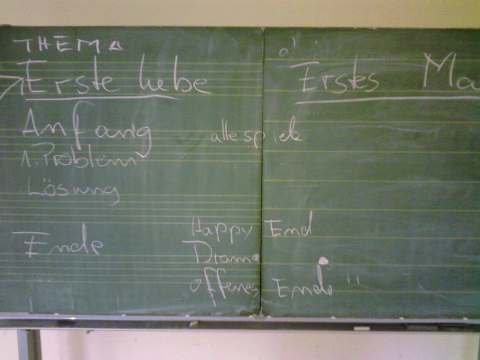 THEMA
Erste Liebe
Erstes Ma
Anfang
alle spiele
1. Problem
Lösung
Happy End
Ende
Drama
offenes Ende"